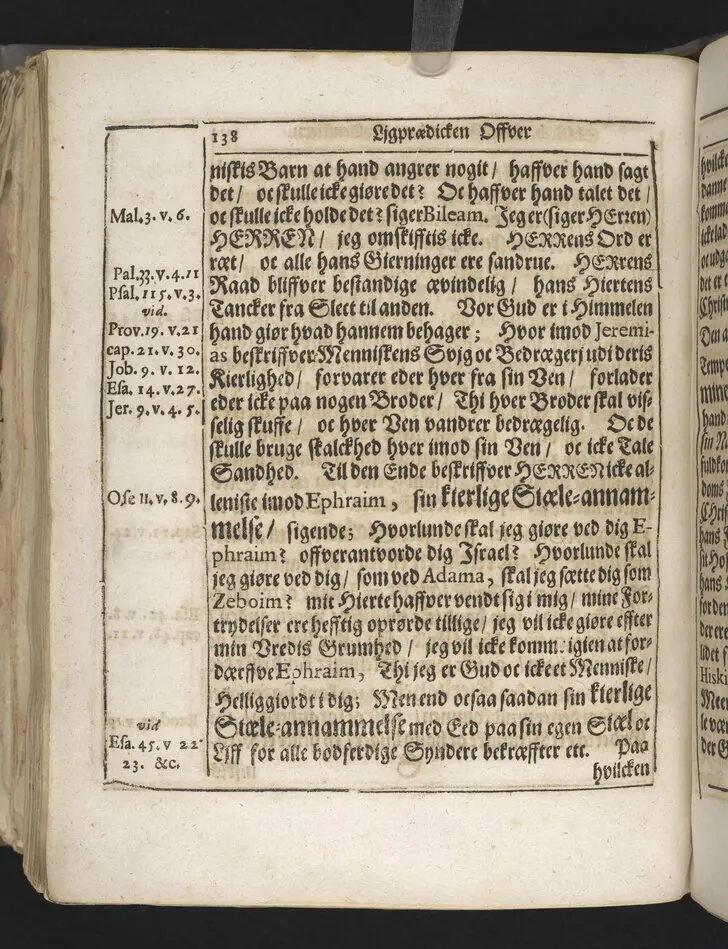 138
Ljgprædicken Offver
niskis Barn at hand angrer nogit / haffver hand sagt
det / oc skulle icke giøre det? Oc haffver hand talet det /
oc skulle icke holde det? siger Bileam. Jeg er (siger HErren)
HERREN / jeg omskifftis icke. HERRens Ord er
ræt / oc alle hans Gierninger ere sandrue. HERrens
Raad bliffver bestandige ævindelig / hans Hiertens
Tancker fra Slect til anden. Vor Gud er i Himmelen
hand giør hvad hannem behager; Hvor imod Jeremi-
as beskriffver Menniskens Svjg oc Bedrægerj udi deris
Kierlighed / forvarer eder hver fra sin Ven / forlader
eder icke paa nogen Broder / Thi hver Broder skal vis-
selig skuffe / oc hver Ven vandrer bedrægelig. Oc de
skulle bruge skalckhed hver imod sin Ven / oc icke Tale
Sandhed. Til den Ende beskriffver HERREN icke al-
leniste imod Ephraim, sin kierlige Siæle-annam-
melse / sigende; Hvorlunde skal jeg giøre ved dig E-
phraim? offverantvorde dig Israel? Hvorlunde skal
jeg giøre ved dig / som ved Adama, skal jeg sætte dig som
Zeboim? mit Hierte haffver vendt sig i mig / mine For-
trydelser ere hefftig oprørde tillige / jeg vil icke giøre effter
min Vredis Grumhed / jeg vil icke komm. igien at for-
dærffve Ephraim, Thi jeg er Gud oc icke et Menniske /
Helliggiordt i dig; Men end ocsaa saadan sin kierlige
Siæle-annammelse med Eed paa sin egen Siæl oc
Liff for alle bodferdige Syndere bekræffter ett. Paa
hvilcken
Mal. 3. v. 6.
Pal. 33. v. 4. 11
Psal. 115. v. 3.
vid.
Prov. 19. v. 21
cap. 21. v. 30.
Job. 9. v. 12.
Esa. 14. v. 27.
Jer. 9. v. 4. 5.
Ose 11. v. 8. 9.
vid
Esa. 45. v 22
23. &c.